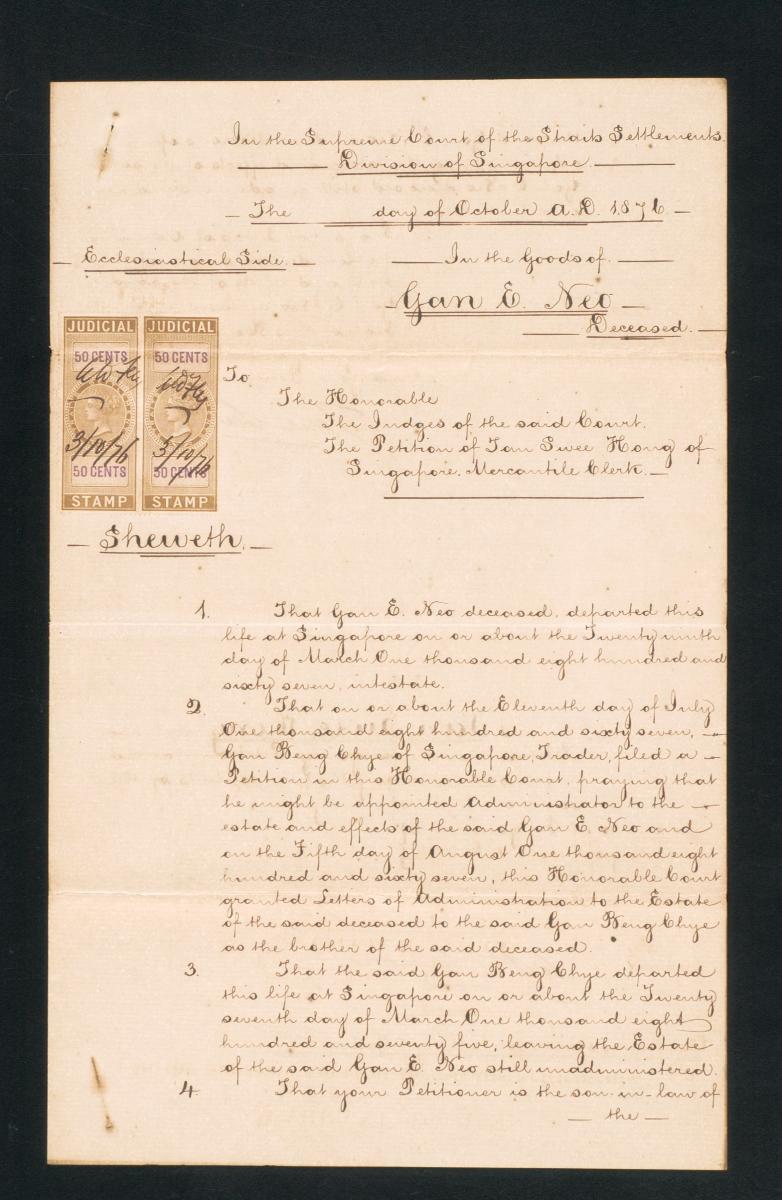 In the Supreme Court of the Straits Settlements.
Division of Singapore.
The day of October A.D. 1876
Ecclesiastical Side.
In the Goods of
Gan E. Neo
Deceased.
JUDICIAL JUDICIAL
50 CENTS 50 CENTS
3/10/76 3/10/76
50 CENTS 50 CENTS
STAMP STAMP
To
The Honorable
The Judges of the said Court.
The Petition of Tan Swee Hong of
Singapore. Mercantile Clerk.
Sheweth.
1. That Gan E. Neo deceased, departed this
life at Singapore on or about the Twenty ninth
day of March One thousand eight hundred and
sixty seven, intestate.
2. That on or about the Eleventh day of July
One thousand eight hundred and sixty seven,
Gan Beng Chye of Singapore, Trader, filed a
Petition in this Honorable Court, praying that
he might be appointed Administrator to the
estate and effects of the said Gan E. Neo and
on the Fifth day of August One thousand eight
hundred and sixty seven, this Honorable Court
granted Letters of Administration to the Estate
of the said deceased to the said Gan Beng Chye
as the brother of the said deceased.
3. That the said Gan Beng Chye departed
this life at Singapore on or about the Twenty
seventh day of March One thousand eight
hundred and seventy five, leaving the Estate
of the said Gan E. Neo still unadministered.
4. That your Petitioner is the son-in-law of
the